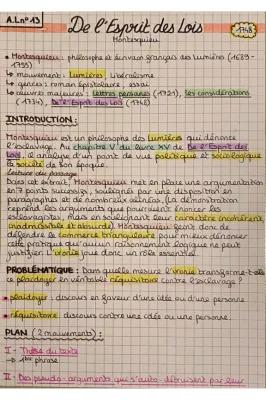 A.L n°13
De l'Esprit des Lois
1748
Montesquieu
• Montesquieu : philosophe et écrivain français des lumières (1689-
1755)
↳ mouvement : Lumières, Libéralisme
↳ genres : roman épistolaire, essai
↳ œuvres majeures : Lettres persanes (1721), les considérations
(1734), De l'Esprit des Lois (1748)
INTRODUCTION :
Montesquieu est un philosophe des Lumières qui dénonce
l'esclavage. Au chapitre V du livre XV de De l'Esprit des
Lois, il analyse d'un point de vue politique et sociologique
la société de son époque.
Lecture du passage
Dans cet extrait, Montesquieu met en place une argumentation
en points successifs, soulignés par une disposition en
paragraphes et de nombreux alinéas, la démonstration
reprend les arguments que pourraient énoncer les
esclavagistes, mais en soulignant leur caractère incohérent,
inadmissible et absurde. Montesquieu feint donc de
défendre le commerce triangulaire pour mieux dénoncer
cette pratique qu'aucun raisonnement logique ne peut
justifier. L'ironie joue donc un rôle essentiel.
PROBLÉMATIQUE : Dans quelle mesure l'ironie transforme-t-elle
ce plaidoyer en véritable réquisitoire contre l'esclavage ?
plaidoyer : discours en faveur d'une idée ou d'une personne
réquisitoire : discours contre une idée ou une personne.
PLAN (2 mouvements) :
I - Thèse du texte
→ 1ère phrase
II - Des pseudo-arguments qui s'auto-détruisent par leur